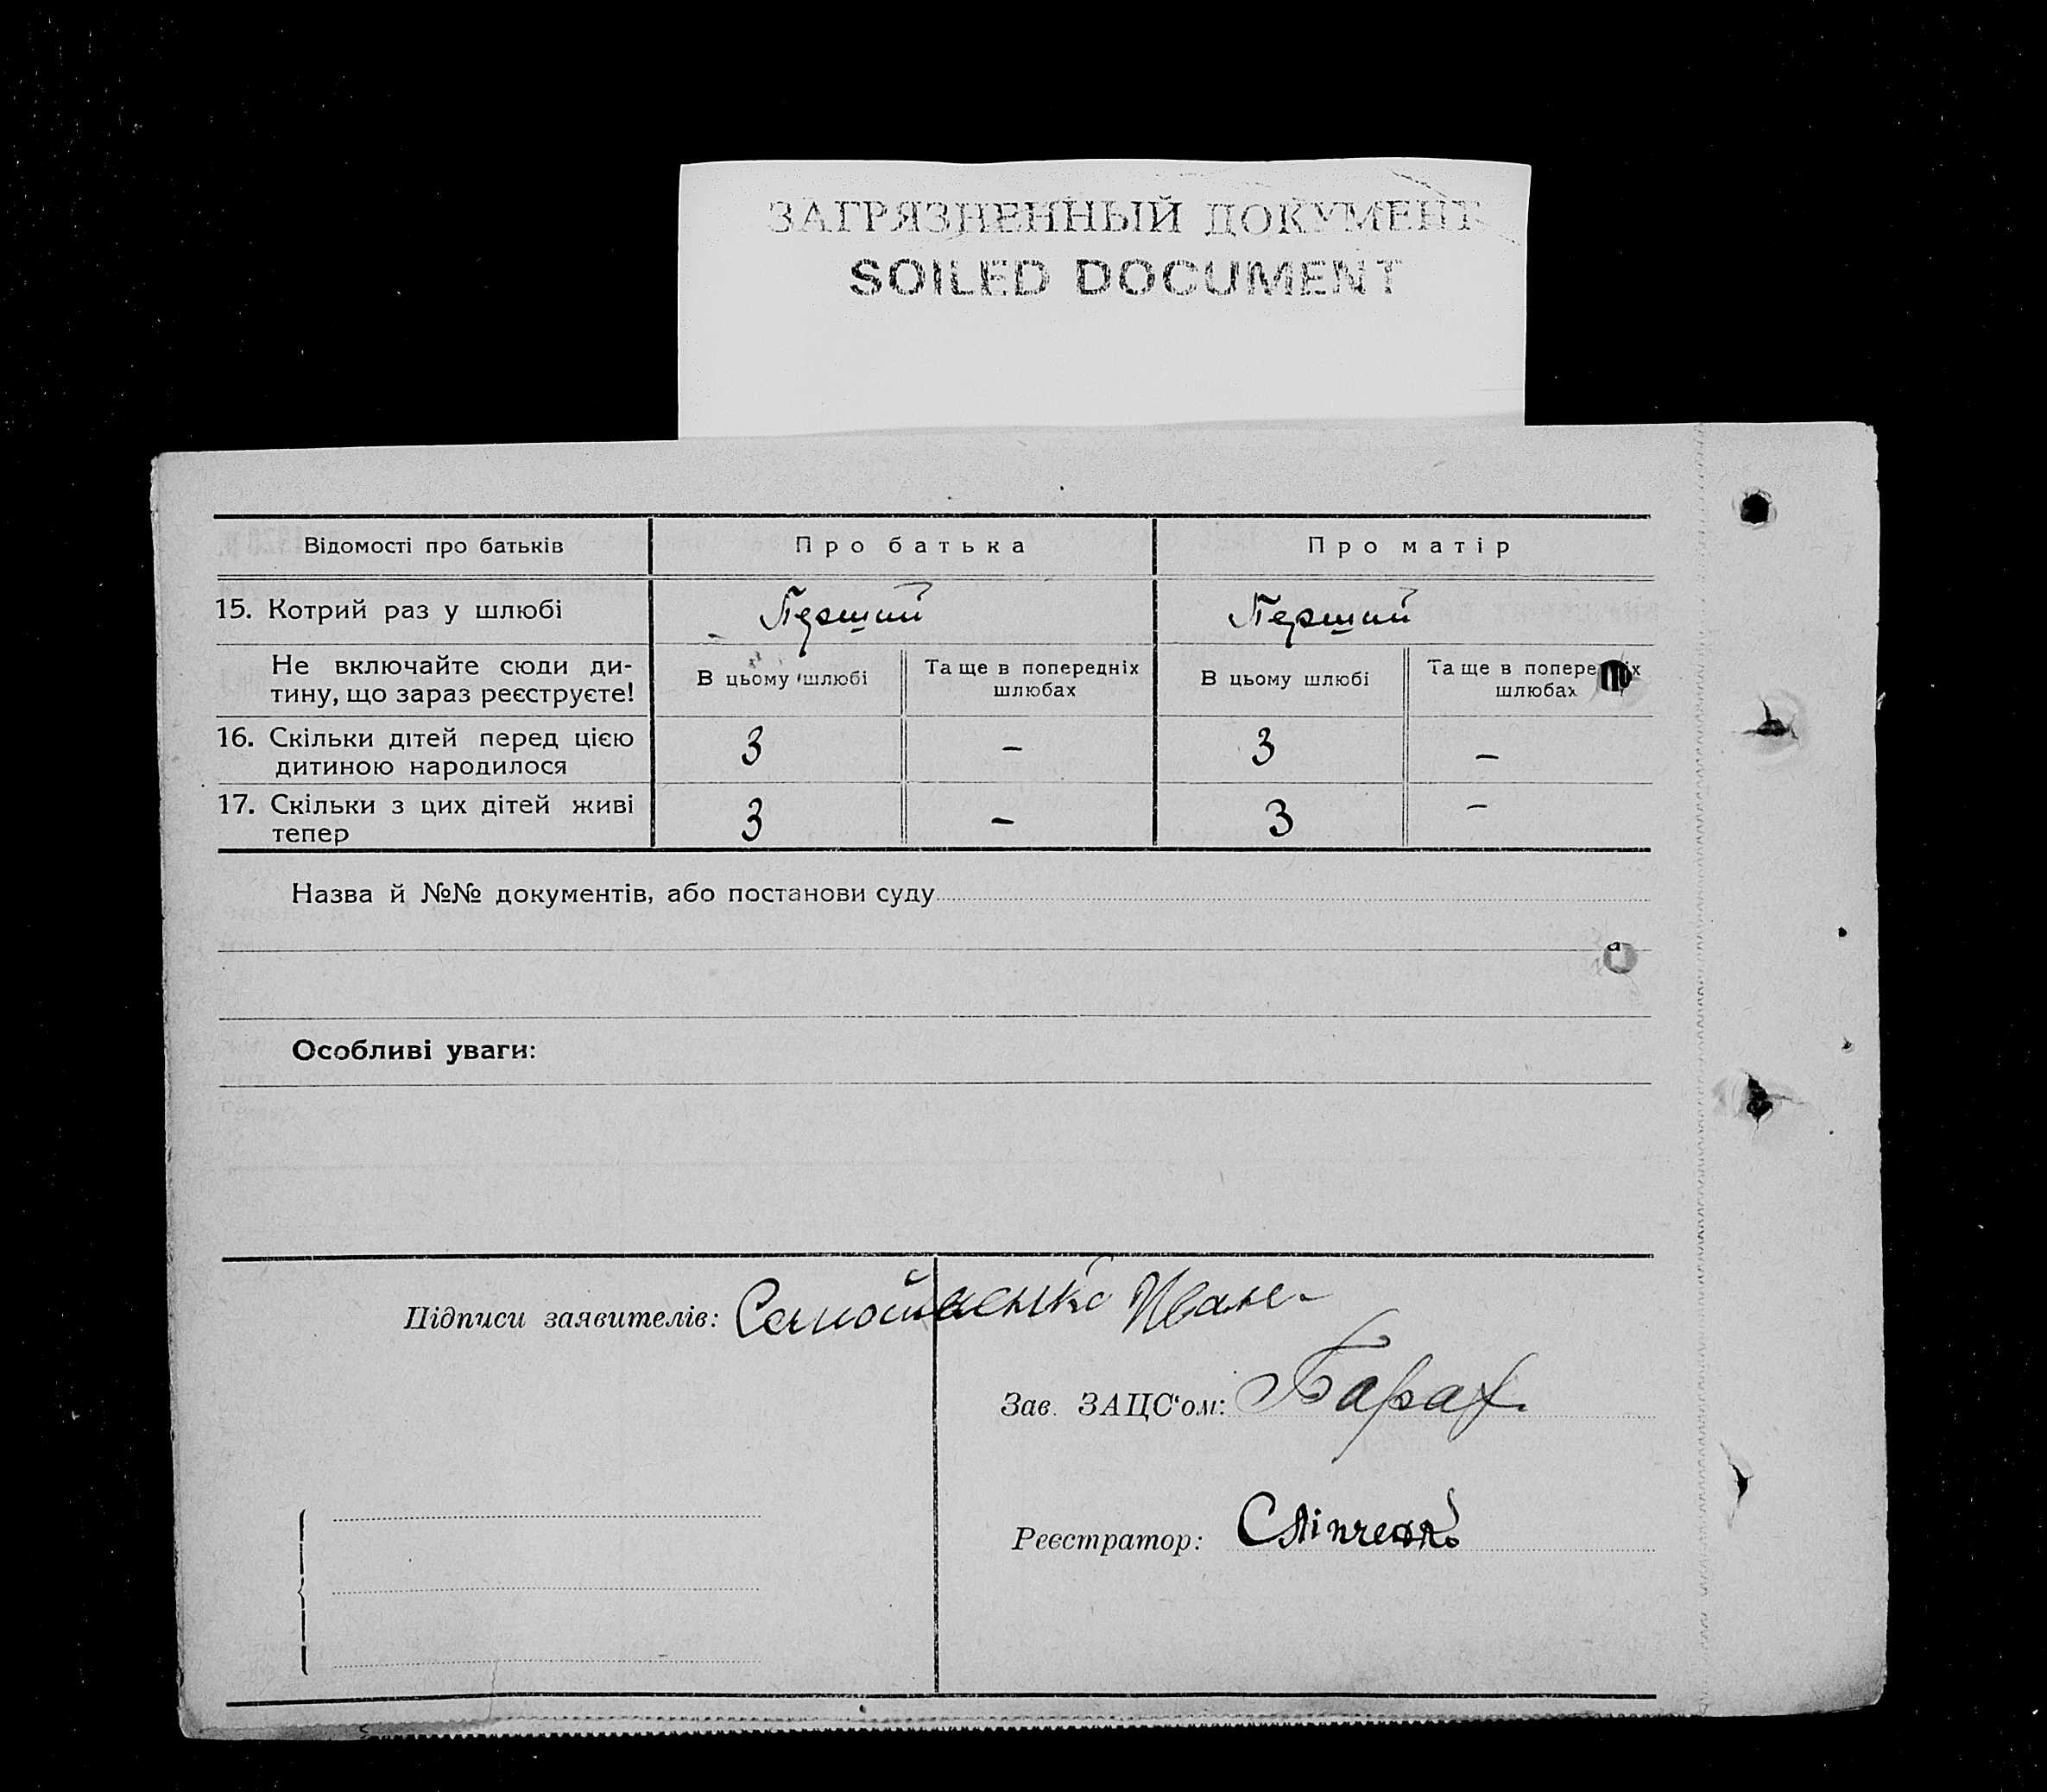 ЗАГРЯЗНЕННЫЙ ДОКУМЕНТ
SOILED DOCUMENT
Відомості про батьків
Про батька
Про матір
15. Котрий раз у шлюбі
Перший
Перший
Не включайте сюди ди-
тину, що зараз реєструєте!
В цьому шлюбі
Та ще в попередніх
шлюбах
В цьому шлюбі
Та ще в попередніх
шлюбах
16. Скільки дітей перед цією
дитиною народилося
3
–
3
–
17. Скільки з цих дітей живі
тепер
3
–
3
–
Назва й №№ документів, або постанови суду
Особливі уваги:
Підписи заявителів: Самойленко Иван
Зав. ЗАЦС'ом:
Реєстратор: Сліпченко